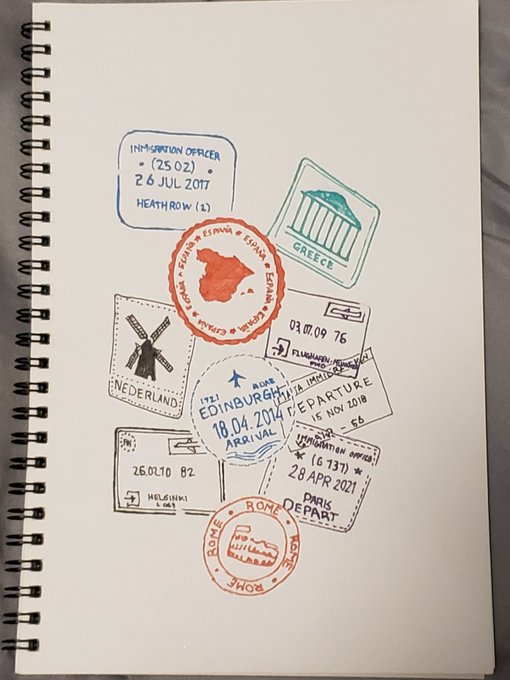 INMIGRATION OFFICER
• (2502) •
26 JUL 2017
HEATHROW (2)
GREECE
ESPAÑA ★ ESPAÑA ★ ESPAÑA ★ ESPAÑA ★ ESPAÑA ★ ESPAÑA ★ ESPAÑA ★ ESPAÑA ★
03.07.09 76
FLUGHAFEN
NEDERLAND
1721
EDINBURGH
18.04.2014
ARRIVAL
DEPARTURE
15 NOV 2018
- 56
FIN
26.02.10 82
HELSINKI
IMMIGRATION OFFICER
★ (6137) ★
28 APR 2021
PARIS
DEPART
ROME • ROME • ROME • ROME •